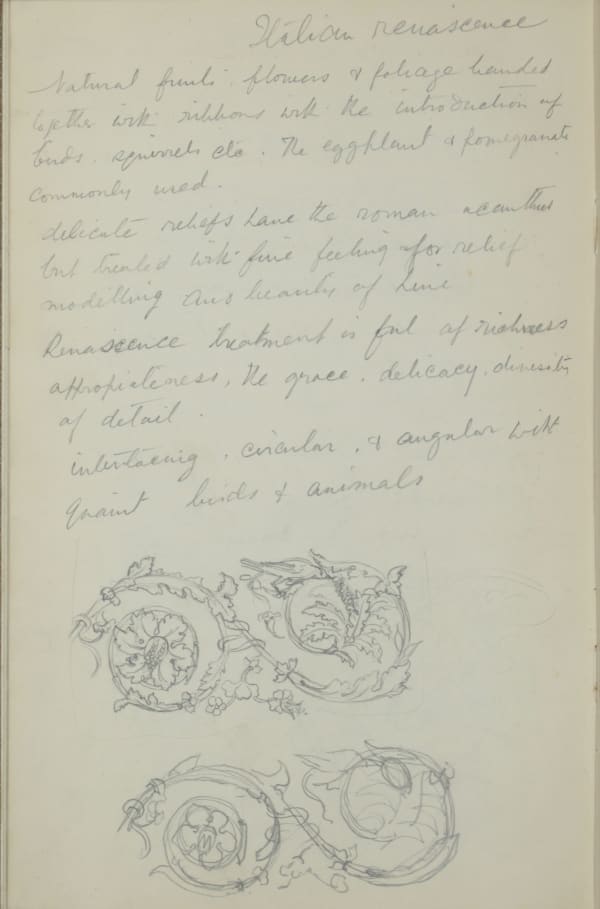 Italian renascence
Natural fruits. flowers & foliage banded
together with ribbons with the introduction of
birds. squirrels etc. The eggplant & pomegranate
commonly used.
delicate reliefs have the roman acanthus
but treated with fine feeling for relief
modelling and beauty of line
Renascence treatment is full of richness
appropiateness, the grace. delicacy. diversity
of detail.
interlacing, circular, & angular with
quaint birds & animals